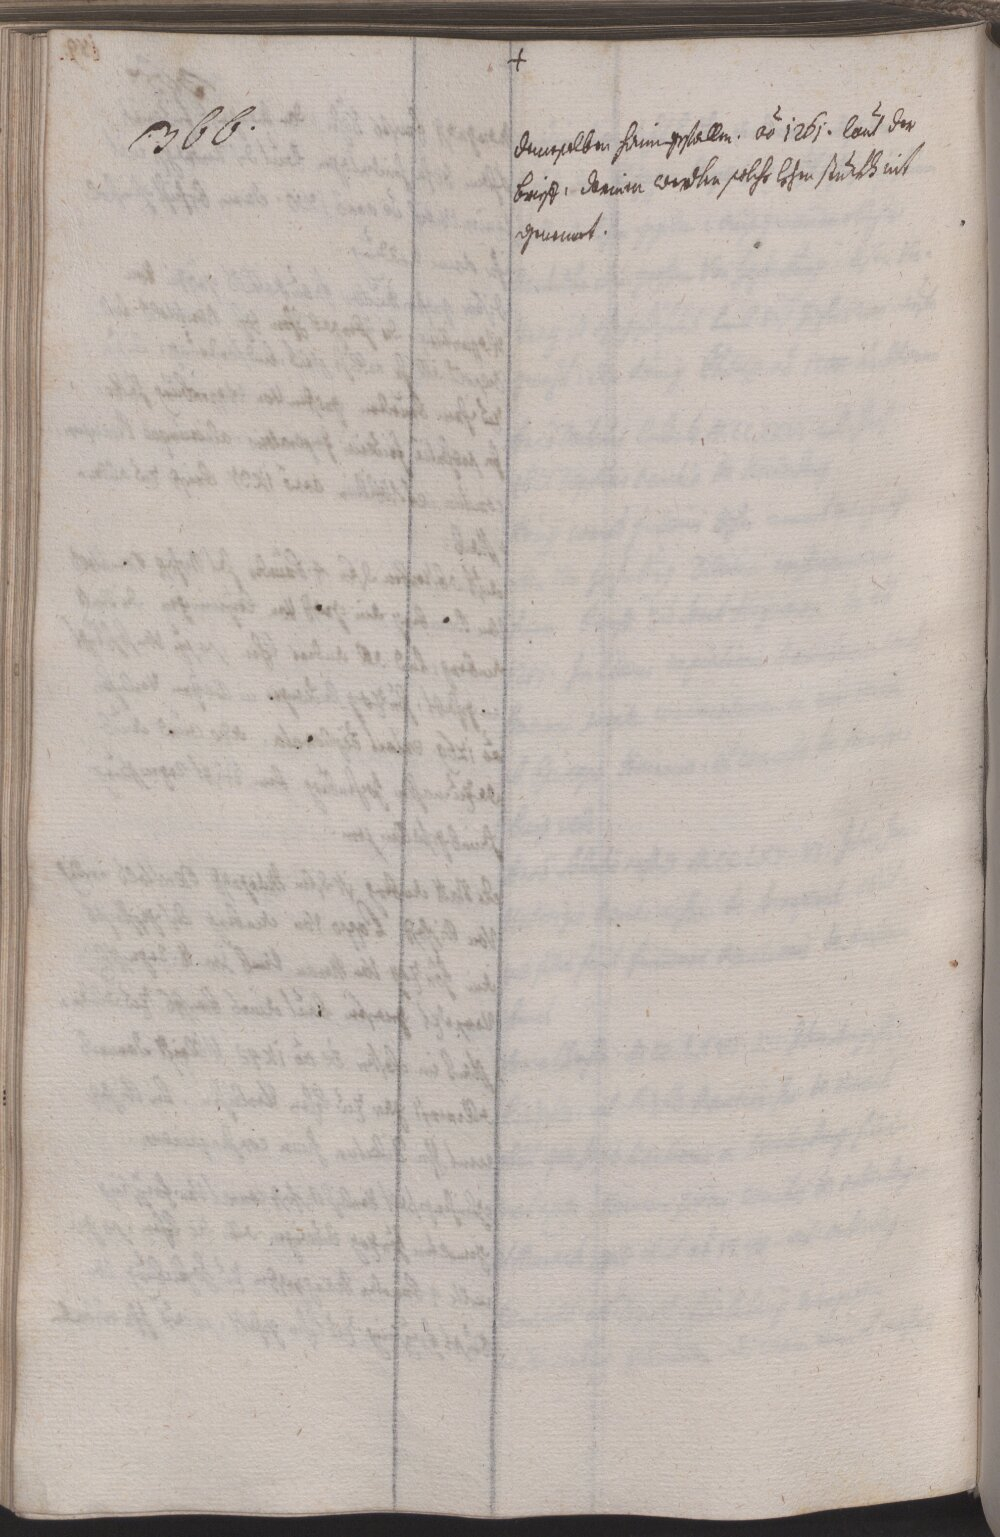 +
366.
demselben haimgefallen. aō 1261. laut der
brieff, darinen werden solche lehen stuckh nit
genennt.